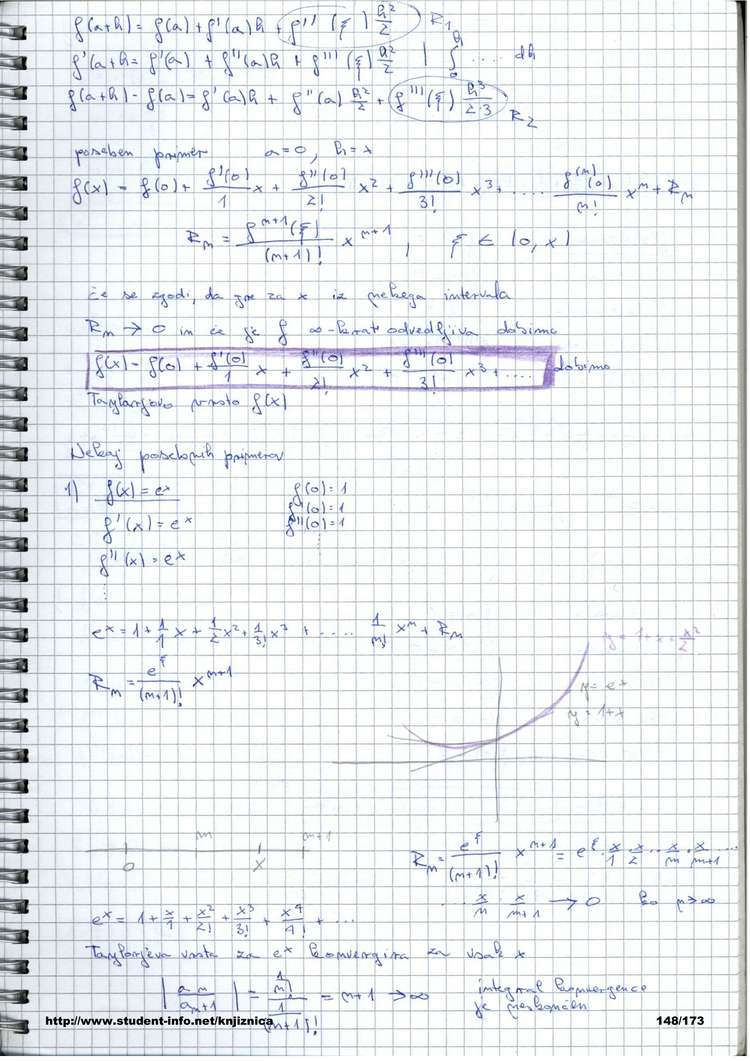 f(a+h) = f(a) + f'(a)h + f''(ξ) h²/2   R₁
f'(a+h = f'(a) + f''(a)h + f'''(ξ) h²/2 | ∫₀ʰ .... dh
f(a+h) - f(a) = f'(a)h + f''(a) h²/2 + f'''(ξ) h³/2·3   R₂
poseben primer   a=0, h=x
f(x) = f(0) + f'(0)/1 x + f''(0)/2! x² + f'''(0)/3! x³ + .... f⁽ⁿ⁾(0)/n! xⁿ + Rₙ
Rₙ = fⁿ⁺¹(ξ)/(n+1)! xⁿ⁺¹,   ξ ∈ (0, x)
če se zgodi, da gre za x iz nekega intervala
Rₙ → 0 in če je f ∞-krat odvedljiva dobimo
f(x) = f(0) + f'(0)/1 x + f''(0)/2! x² + f'''(0)/3! x³ + .... dobimo
Taylorjevo vrsto f(x)
Nekaj posebnih primerov
1) f(x) = eˣ   f(0) = 1
f'(x) = eˣ   f'(0) = 1
f''(0) = 1
f''(x) = eˣ
eˣ = 1 + 1/1 x + 1/2 x² + 1/3! x³ + .... 1/n! xⁿ + Rₙ
y = 1 + x + x²/2
Rₙ = e^ξ/(n+1)! xⁿ⁺¹
y = eˣ
y = 1+x
n   n+1
0   x
Rₙ = e^ξ/(n+1)! xⁿ⁺¹ = e^ξ · x/1 · x/2 ·· x/n · x/n+1 ....
x/n · x/n+1 → 0 ko n→∞
eˣ = 1 + x/1 + x²/2! + x³/3! + x⁴/4! + ...
Taylorjeva vrsta za eˣ konvergira za vsak x
| aₙ/aₙ₊₁ | = (1/n!)/(1/(n+1)!) = n+1 → ∞   integral konvergence
je neskončen
http://www.student-info.net/knjiznica   148/173